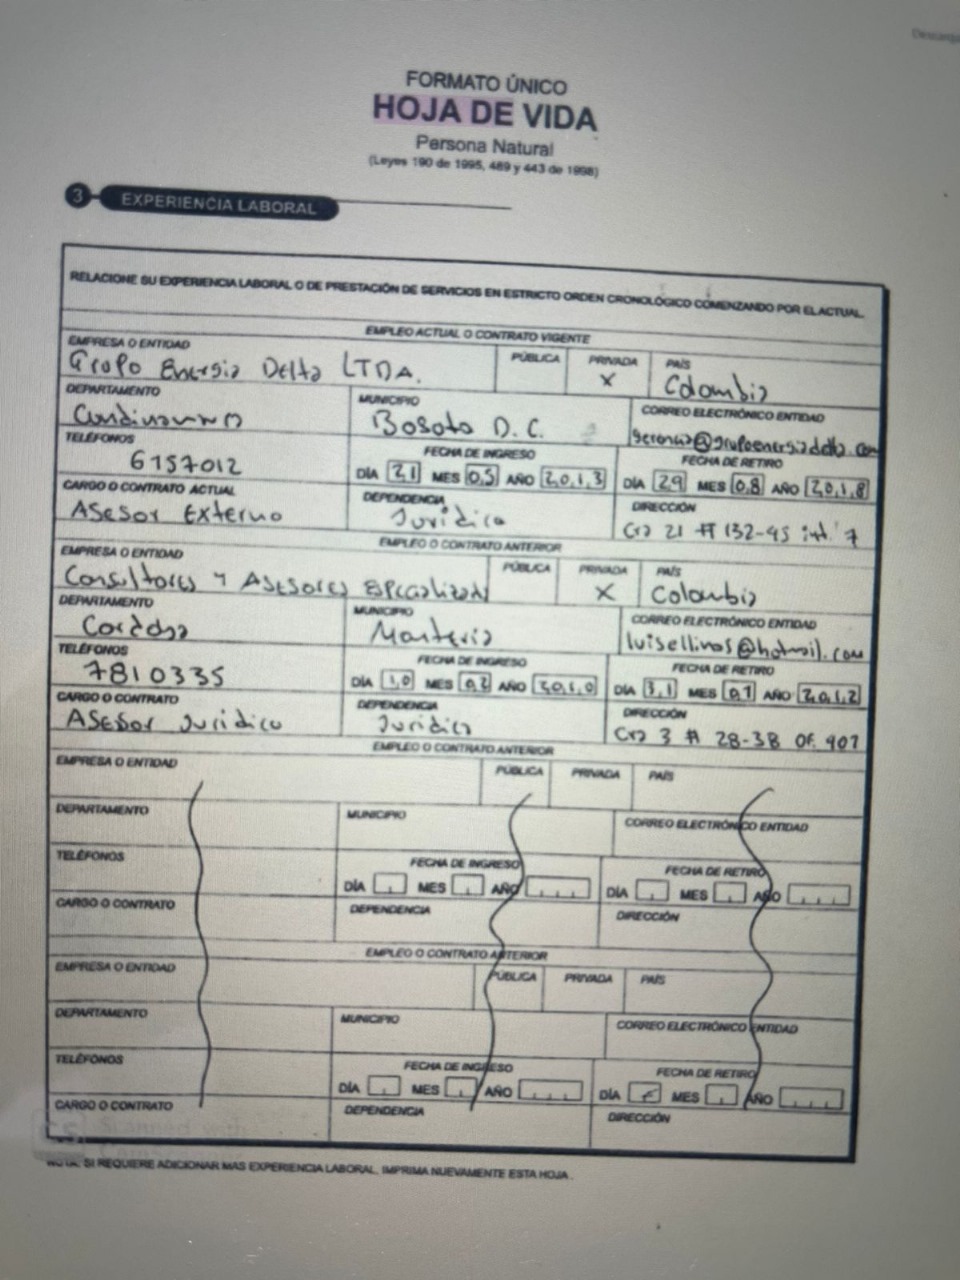 FORMATO ÚNICO
HOJA DE VIDA
Persona Natural
(Leyes 190 de 1995, 489 y 443 de 1998)
3 EXPERIENCIA LABORAL
RELACIONE SU EXPERIENCIA LABORAL O DE PRESTACIÓN DE SERVICIOS EN ESTRICTO ORDEN CRONOLÓGICO COMENZANDO POR EL ACTUAL.
EMPLEO ACTUAL O CONTRATO VIGENTE
EMPRESA O ENTIDAD PÚBLICA PRIVADA PAÍS
Grupo Energia Delta LTDA. X Colombia
DEPARTAMENTO MUNICIPIO CORREO ELECTRÓNICO ENTIDAD
Bogota D.C. gerencia@grupoenergiadelta.com
TELÉFONOS FECHA DE INGRESO FECHA DE RETIRO
6157012 DÍA 21 MES 05 AÑO 2013 DÍA 29 MES 08 AÑO 2018
CARGO O CONTRATO ACTUAL DEPENDENCIA DIRECCIÓN
Asesor Externo Juridica Cra 21 # 132-45 int. 7
EMPLEO O CONTRATO ANTERIOR
EMPRESA O ENTIDAD PÚBLICA PRIVADA PAÍS
Consultores y Asesores X Colombia
DEPARTAMENTO MUNICIPIO CORREO ELECTRÓNICO ENTIDAD
Cordoba Monteria luisellinas@hotmail.com
TELÉFONOS FECHA DE INGRESO FECHA DE RETIRO
7810335 DÍA 10 MES 02 AÑO 2010 DÍA 31 MES 01 AÑO 2012
CARGO O CONTRATO DEPENDENCIA DIRECCIÓN
Asesor Juridico Juridica Cra 3 # 28-38 Of. 407
EMPLEO O CONTRATO ANTERIOR
EMPRESA O ENTIDAD PÚBLICA PRIVADA PAÍS
DEPARTAMENTO MUNICIPIO CORREO ELECTRÓNICO ENTIDAD
TELÉFONOS FECHA DE INGRESO FECHA DE RETIRO
DÍA MES AÑO DÍA MES AÑO
CARGO O CONTRATO DEPENDENCIA DIRECCIÓN
EMPLEO O CONTRATO ANTERIOR
EMPRESA O ENTIDAD PÚBLICA PRIVADA PAÍS
DEPARTAMENTO MUNICIPIO CORREO ELECTRÓNICO ENTIDAD
TELÉFONOS FECHA DE INGRESO FECHA DE RETIRO
DÍA MES AÑO DÍA MES AÑO
CARGO O CONTRATO DEPENDENCIA DIRECCIÓN
CS Scanned with
NOTA: SI REQUIERE ADICIONAR MAS EXPERIENCIA LABORAL, IMPRIMA NUEVAMENTE ESTA HOJA.